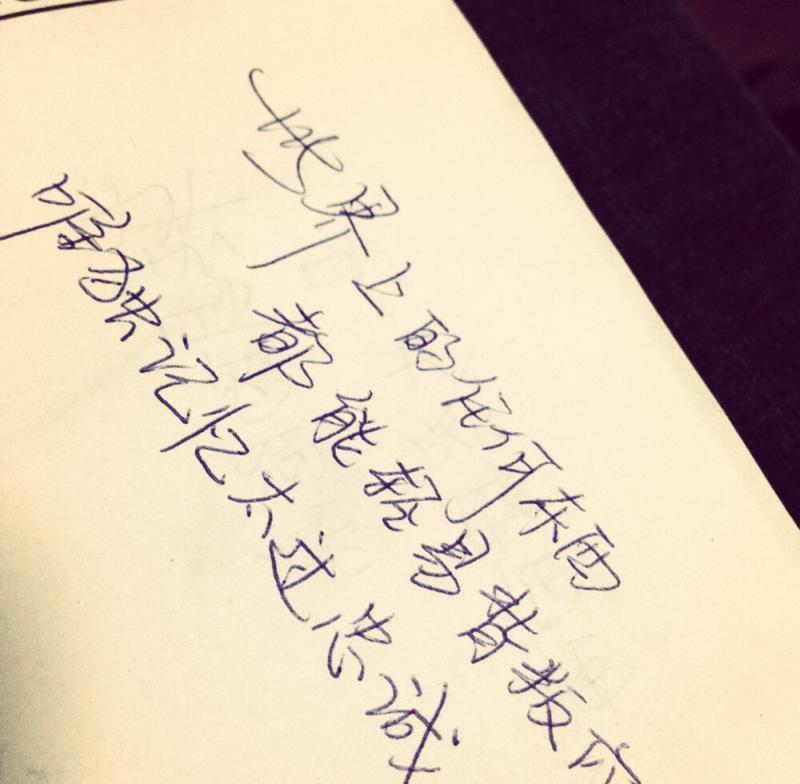 世界上的任何东西
都能轻易背叛
唯独记忆太过忠诚